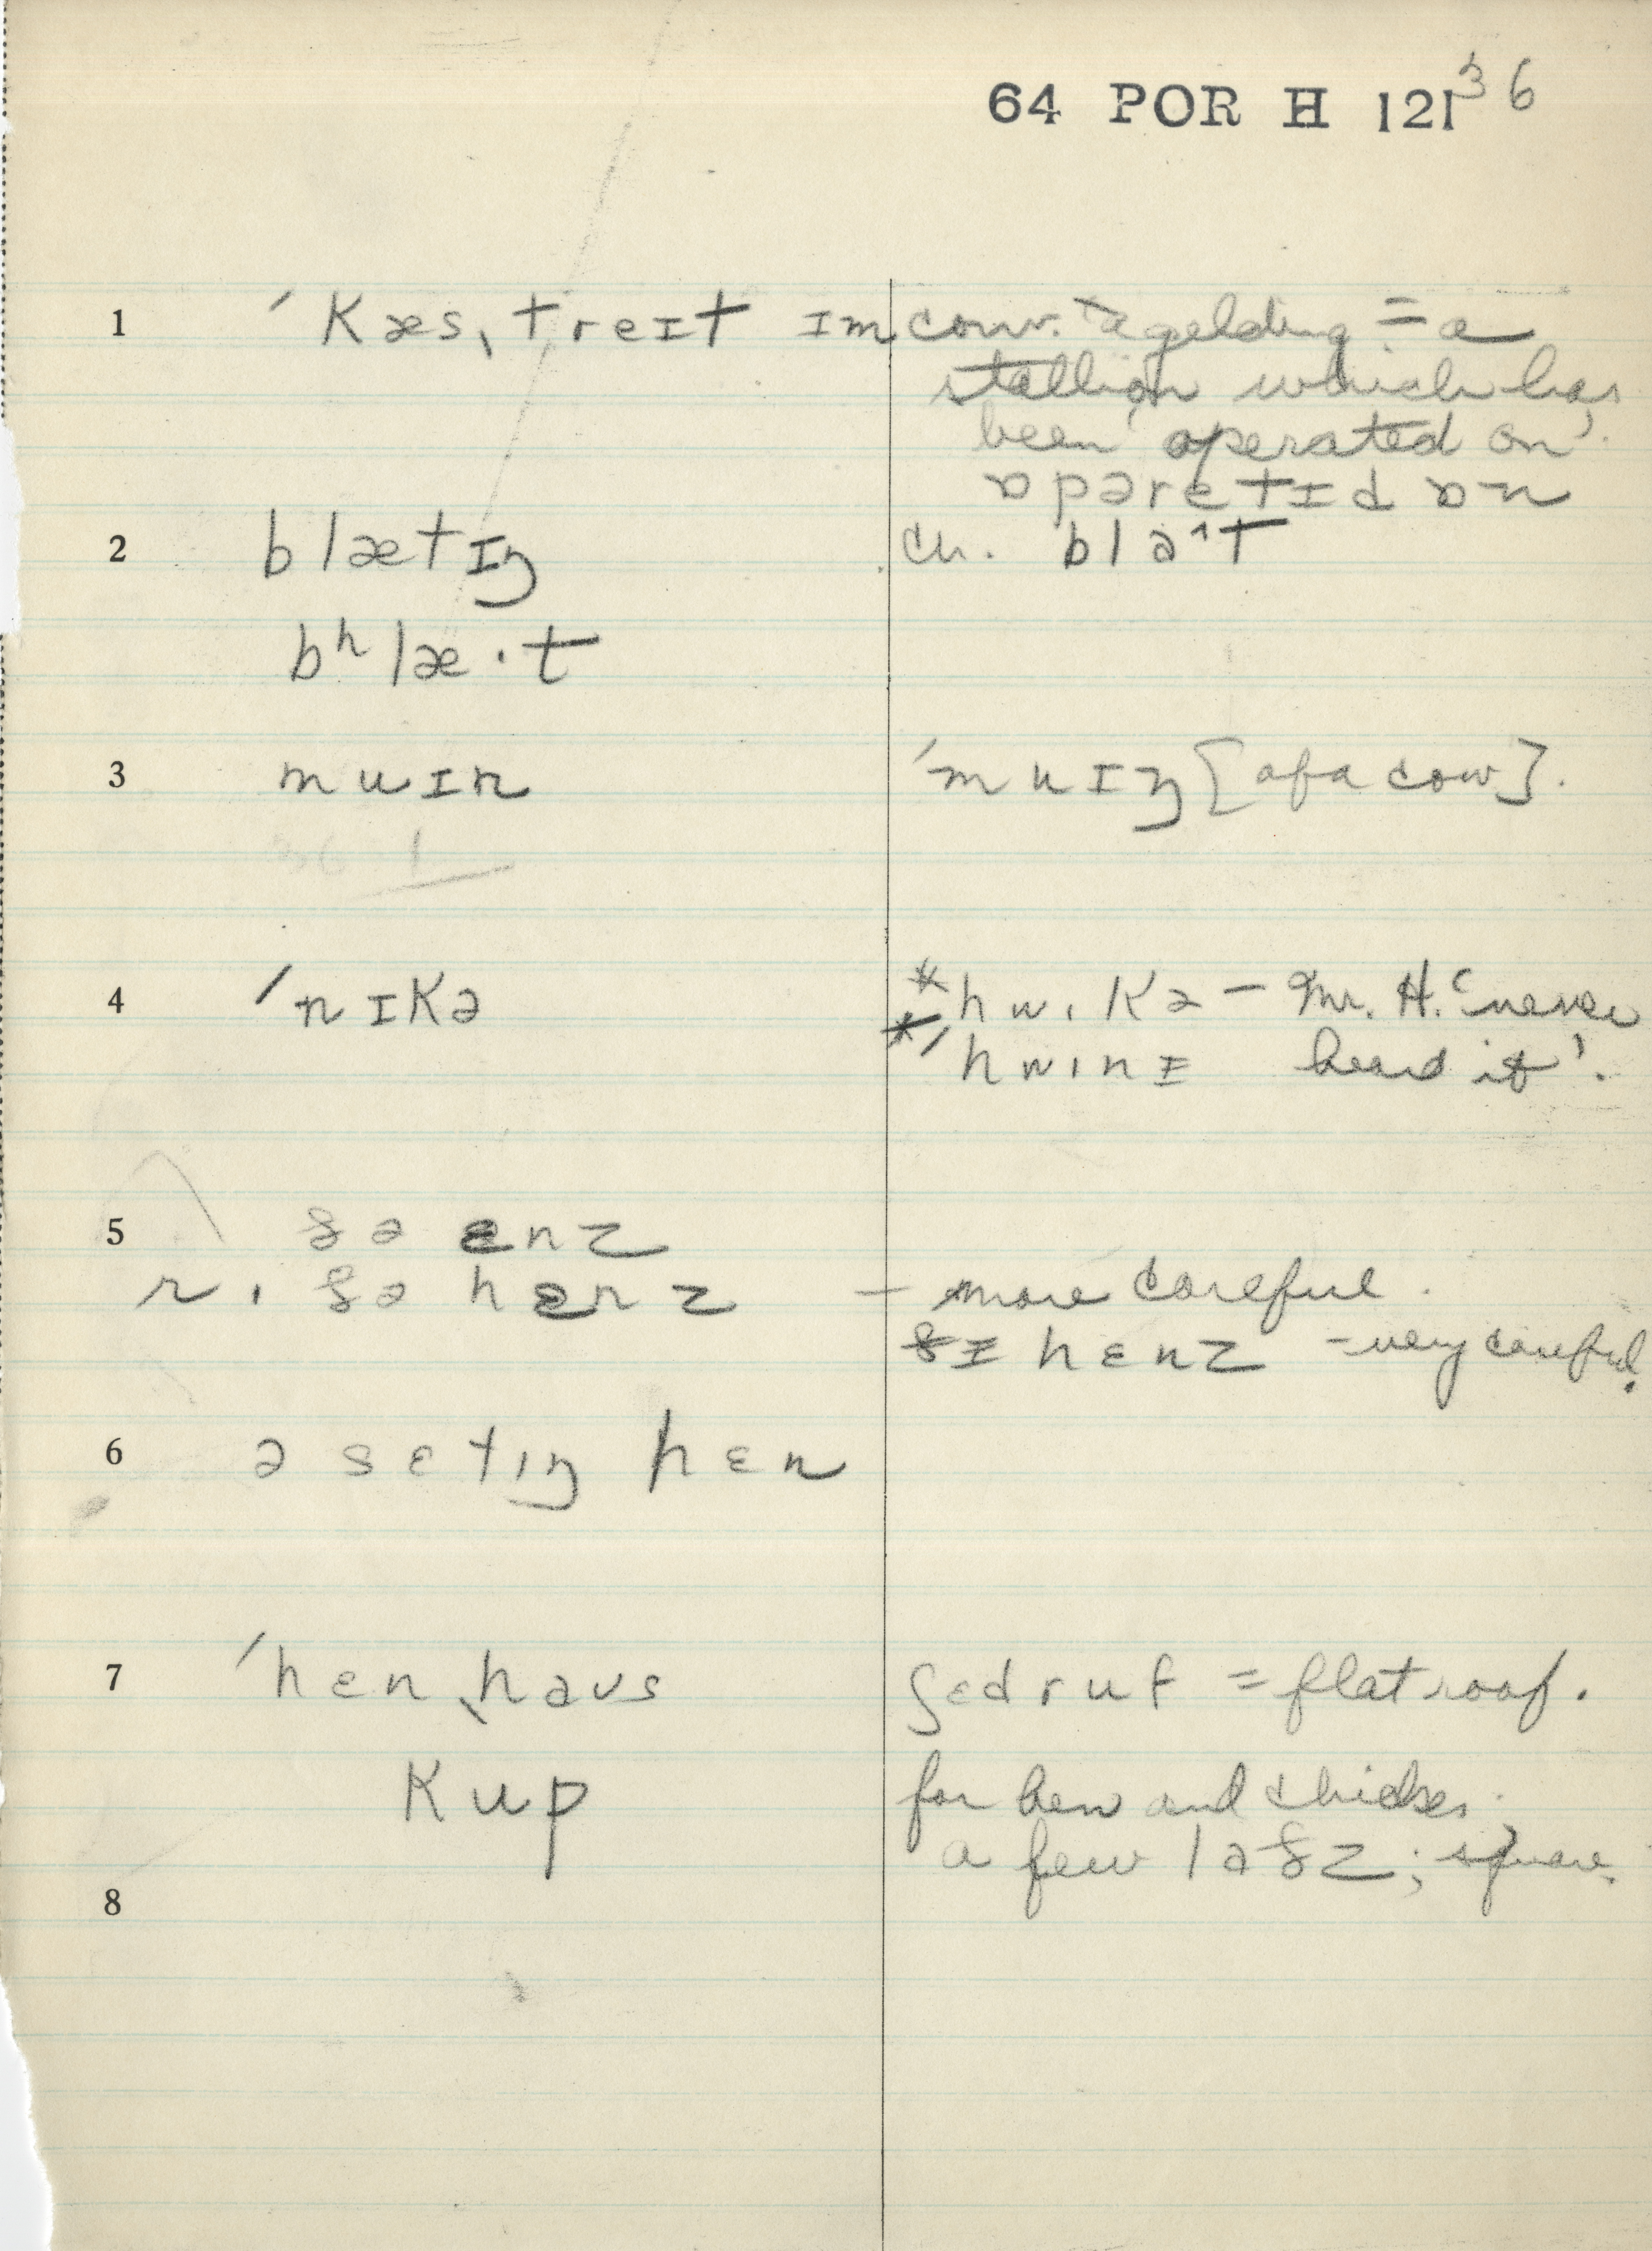 64 POR H 121 36
1 ˈkæsˌtreɪt ɪm conv. "a gelding = a
stallion which has
been operated on'.
ɒpəretɪd ɒn
2 blætɪŋ cn. bla^t
bʰlæ·t
3 muɪn ˈmuɪŋ [of a cow].
4 ˈnɪkə *hwɪkə – Mr. H. 'never
*ˈhwɪnɪ heard it'.
5 ðə ɛnz
r. ðə hɛnz – more careful.
ðɪ hɛnz – very careful.
6 ə sɛtɪŋ hɛn
7 ˈhɛnˌhaʊs ʃɛd ruf = flat roof.
kup for hen and chicks.
a few laðz; square.
8